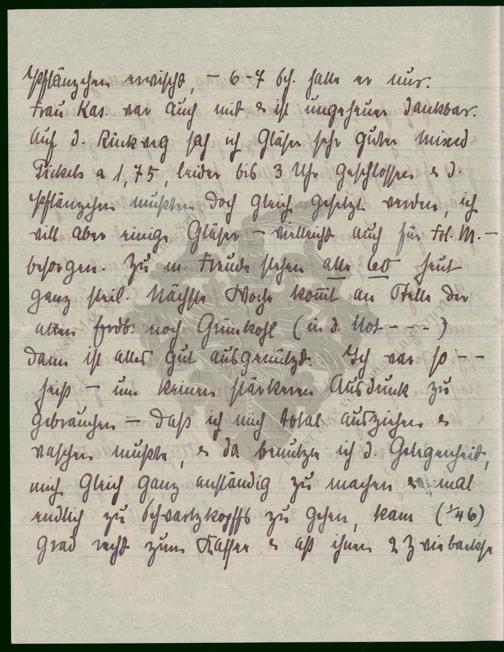 Pflänzchen erwischt, – 6-7 Sch. hatte er nur.
Frau Kas. war auch mit & ist ungeheuer dankbar.
Auf d. Rückweg sah ich Gläser sehr guter Mixed
Pickels a 1,75 leider bis 3 Uhr geschlossen & d.
Pflänzchen mußten doch gleich gesetzt werden, ich
will aber einige Gläser – vielleicht auch für Frl. M. –
besorgen. Zu m. Freude stehen alle 60 heut
ganz steil. Nächste Woche kom̄t an Stelle der
alten Erdb. noch Grünkohl (in d. Not – – – )
dann ist alles gut ausgenützt. Ich war so – –
heiß – um keinen stärkeren Ausdruck zu
gebrauchen – daß ich mich total ausziehen &
waschen mußte, & da benutzte ich d. Gelegenheit,
mich gleich ganz anständig zu machen & mal
endlich zu Schwartzkopffs zu gehen, kam (¼46)
grad recht zum Kaffee & aß ihnen 2 Zwiebäcke